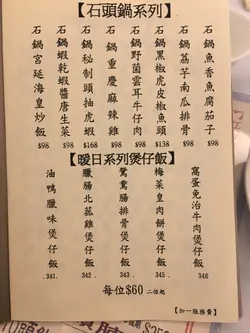 【石頭鍋系列】
石鍋魚香魚腐茄子 $98
石鍋荔芋南瓜排骨 $98
石鍋黑椒虎皮椒魚頭 $138
石鍋野菌雲耳牛肉 $98
石鍋重慶麻辣雞 $98
石鍋秘制頭抽虎蝦 $168
石鍋蝦乾蝦醬唐生菜 $98
石鍋宮廷海皇炒飯 $98
【暖日系列煲仔飯】
窩蛋免治牛肉煲仔飯 346
梅菜皇肉餅煲仔飯 .345.
鴛鴦腸排骨煲仔飯 .343.
臘腸北菇雞煲仔飯 342 .
油鴨臘味煲仔飯 .341.
每位$60 二位起
【加一服務費】